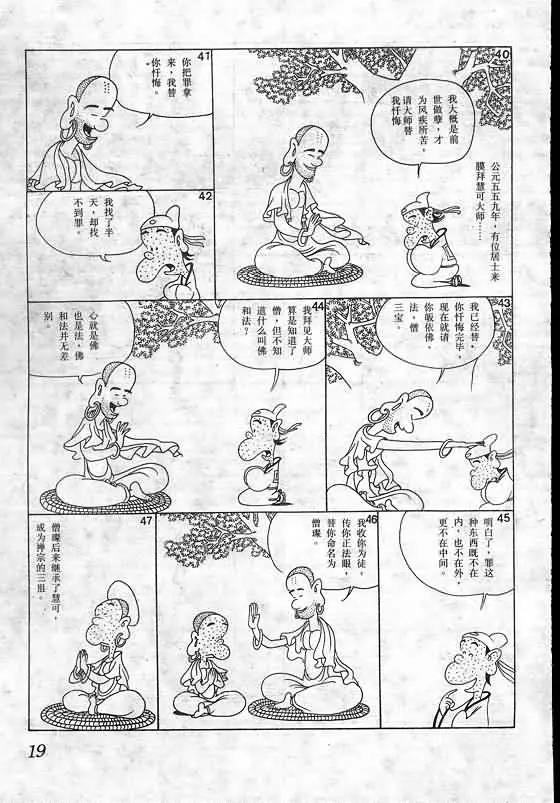 40
公元五五九年，有位居士来
膜拜慧可大师……
我大概是前
世做孽，才
为风疾所苦，
请大师替
我忏悔
41
你把罪拿
来，我替
你忏悔。
42
我找了半
天，却找
不到罪。
43
我已经替
你忏悔完毕，
现在就请
你皈依佛、
法、僧
三宝。
44
我拜见大师
算是知道了
僧，但不知
道什么叫佛
和法？
心就是佛
也是法，佛
和法并无差
别。
45
明白了，罪这
种东西既不在
内，也不在外，
更不在中间。
46
我收你为徒，
传你正法眼，
替你命名为
僧璨。
47
僧璨后来继承了慧可，
成为禅宗的三祖。
19